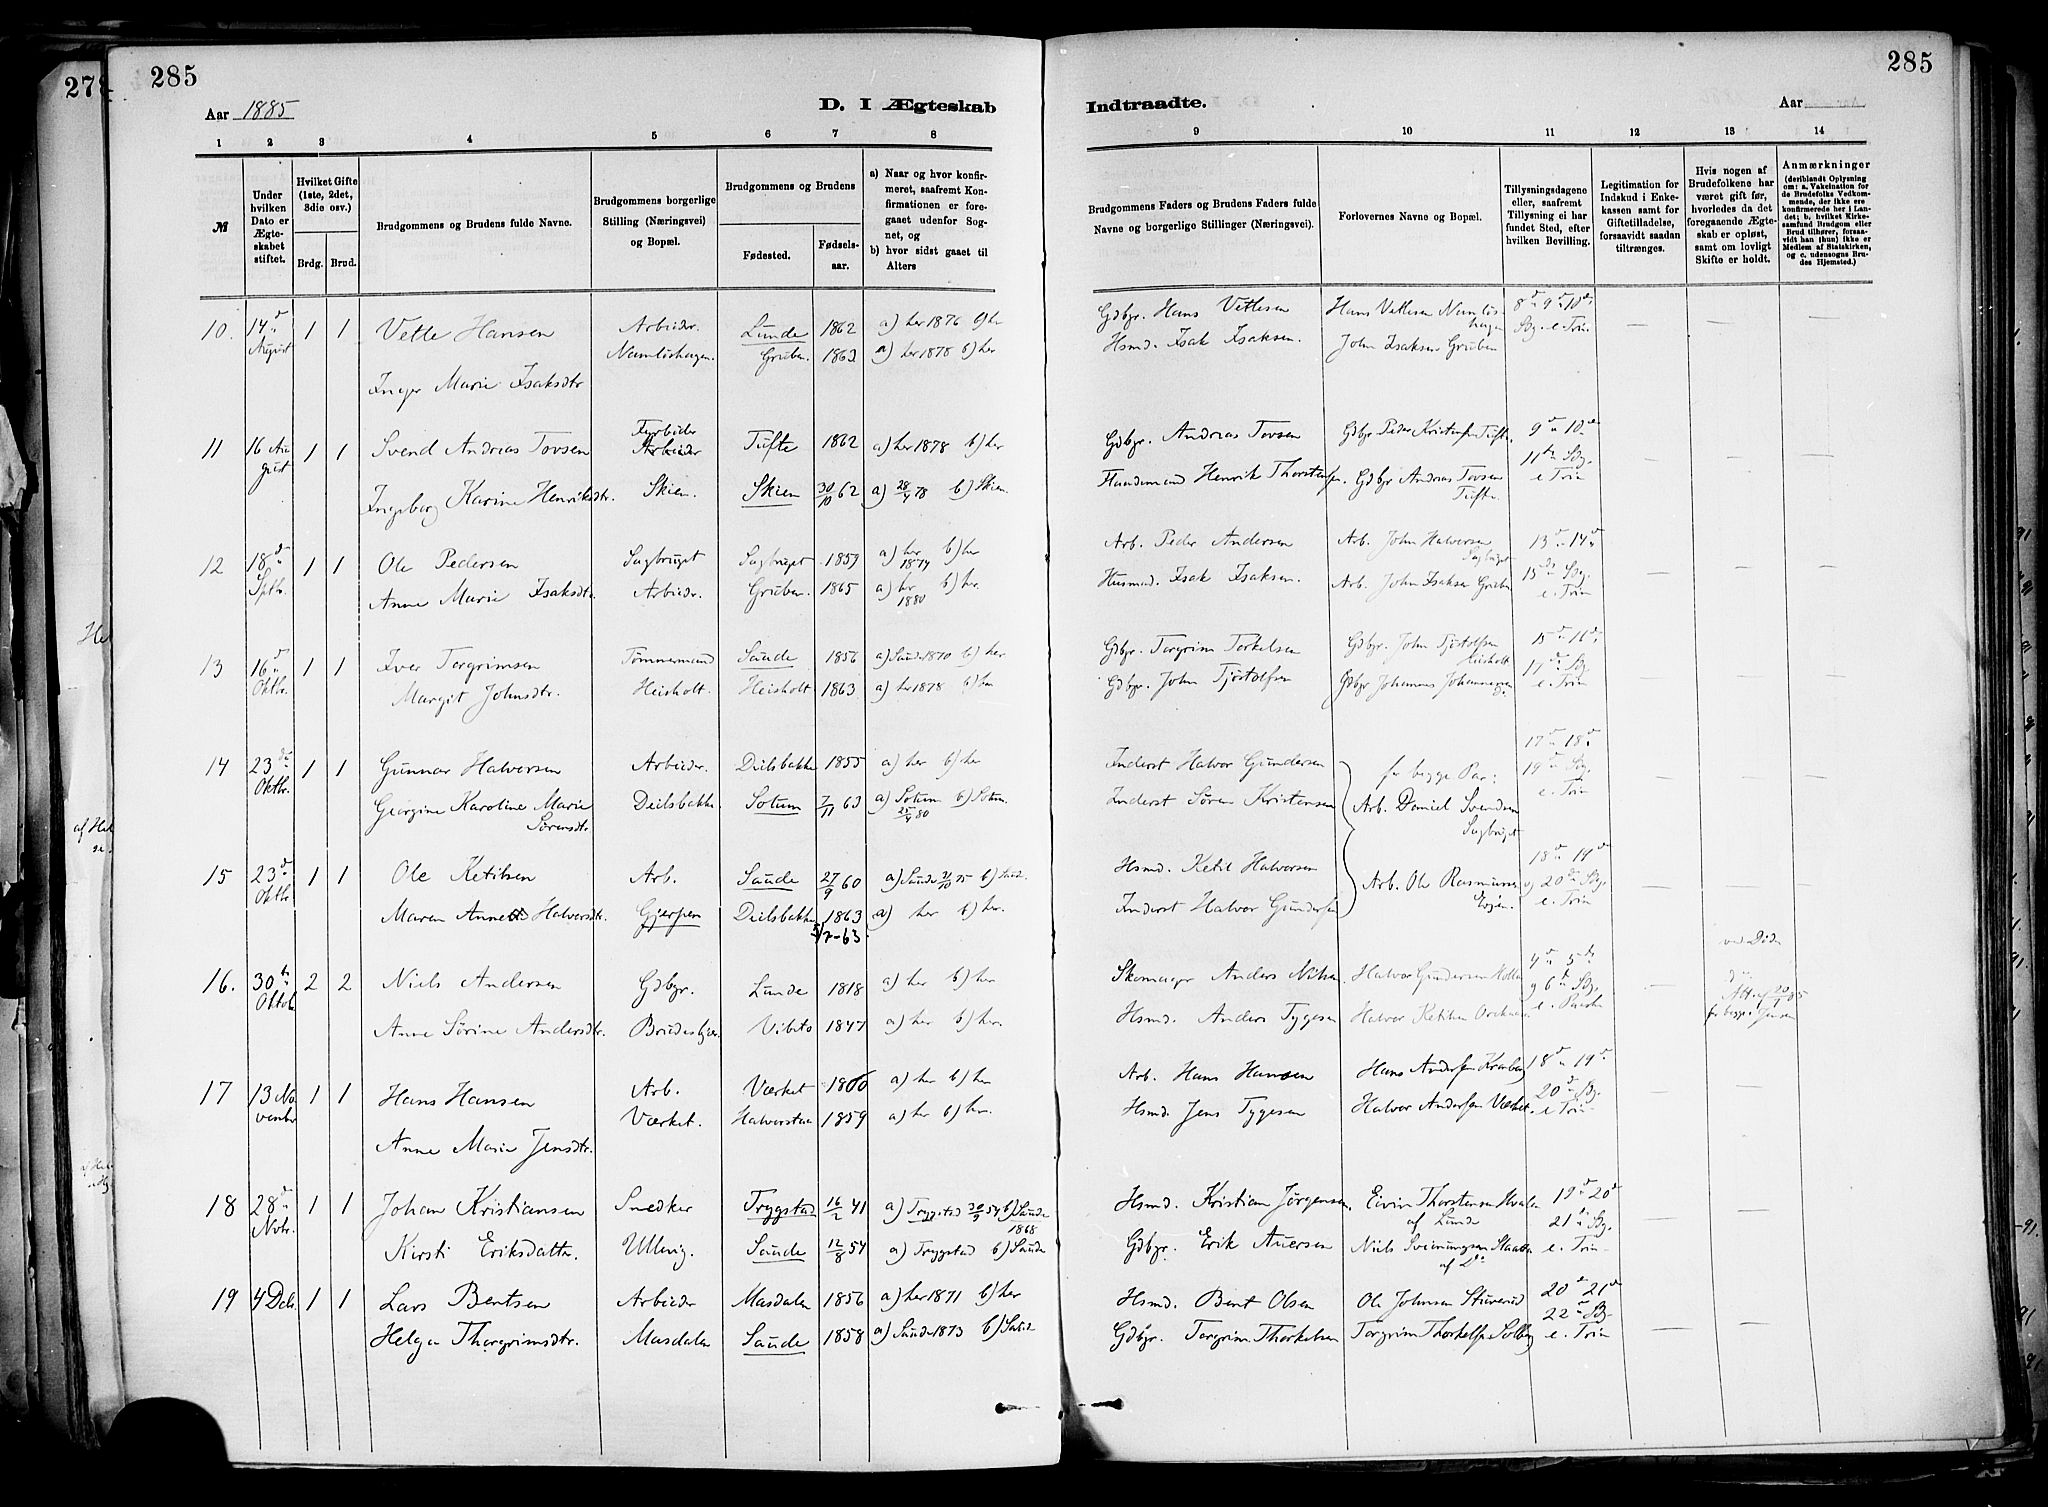 278
285
285
Aar 1885
D. I Ægteskab
Indtraadte.
Aar
1 2 3 4 5 6 7 8
9 10 11 12 13 14
№
Under hvilken Dato er Ægteskabet stiftet.
Hvilket Gifte (1ste, 2det, 3die osv.)
Brdg. Brud.
Brudgommens og Brudens fulde Navne.
Brudgommens borgerlige Stilling (Næringsvei) og Bopæl.
Brudgommens og Brudens
Fødested.
Fødselsaar.
a) Naar og hvor konfirmeret, saafremt Konfirmationen er foregaaet udenfor Sognet, og
b) hvor sidst gaaet til Alters
Brudgommens Faders og Brudens Faders fulde Navne og borgerlige Stillinger (Næringsvei).
Forlovernes Navne og Bopæl.
Tillysningsdagene eller, saafremt Tillysning ei har fundet Sted, efter hvilken Bevilling.
Legitimation for Indskud i Enkekassen samt for Giftetilladelse, forsaavidt saadan tiltrænges.
Hvis nogen af Brudefolkene har været gift før, hvorledes da det foregaaende Ægteskab er opløst, samt om lovligt Skifte er holdt.
Anmærkninger
(deriblandt Oplysning om: a. Vakcination for de Brudefolks Vedkommende, der ikke ere konfirmerede her i Landet; b. hvilket Kirkesamfund Brudgom eller Brud tilhører, forsaavidt han (hun) ikke er Medlem af Statskirken, og c. udensogns Brudes Hjemsted.)
10. 14d August 1 1 Vetle Hansen Arbeider. Lunde 1862 a) her 1876 b) her Gdbgr. Hans Vetlesen Hans Vetlesen Namløshagen 8d 9d 10de
Inger Marie Isaksdtr Namløshagen. Gruben. 1863 a) her 1878 b) her Hsmd. Isak Isaksen. John Isaksen Gruben Sg. e. Trin.
11 16 August 1 1 Svend Andreas Tovsen Fyrbøder Arbeider Tufte 1862 a) her 1878 b) her Gdbgr. Andreas Tovsen Gdbgr Peder Kristensen Tufte 9d 10de
Ingeborg Karine Henriksdtr. Skien. Skien 30/10 62 a) 28/4 78 b) Skien Henrik Thorstensen Gdbgr Andreas Tovsen Tufte. 11te Sg. e. Trin
12 18d Sptbr. 1 1 Ole Pedersen Sagbruget Sagbruget 1859 a) her 1874 b) her Arb. Peder Andersen Arb. John Halvorsen Sagbruget 13d 14d
Anne Marie Isaksdtr. Arbeider. Gruben. 1865 a) her 1880 b) her. Husmd. Isak Isaksen. Arb. John Isaksen Gruben 15de Sg. e. Trin
13 16d Oktbr. 1 1 Iver Torgrimsen Tømmermand Saude 1856 a) Saude 1870 b) her Gdbgr. Torgrim Torkelsen Gdbgr. John Tjostolfsen Heisholt 15d 16d
Margit Johnsdtr. Heisholt. Heisholt 1863 a) her 1878 b) her Gdbgr. John Tjostolfsen Gdbgr Johannes Johannessen 17d Sg. e. Trin
14 23de Oktbr. 1 1 Gunnar Halvorsen Arbeider. Deilsbakke 1855 a) her b) her Inderst Halvor Gundersen for begge Par: 17d 18d
Georgine Karoline Marie Sørensdtr. Deilsbakke Solum 7/11 63 a) Solum 25/4 80 b) Solum. Inderst Søren Kristensen Arb. Daniel Svendsen Sagbruget 19d Sg. e. Trin
15 23d Oktbr. 1 1 Ole Ketilsen Arb. Saude 27/9 60 a) Saude 75 b) Saude. Hsmd. Ketil Halvorsen Arb. Ole Rasmussen 18d 19d
Maren Anne Halvorsdtr. Gjerpen Deilsbakke 1863 a) her b) her. Inderst Halvor Gundersen og 20de Sg. e. Trin
5/7-63.
16. 30te Oktob. 2 2 Niels Andersen Gdbgr. Lunde 1818 a) her b) her Skomager Anders Nilsen Halvor Gundersen Holla 4d 5te ved Død
Anne Sørine Andersdtr. Vibito 1847 a) her b) her. Hsmd. Anders Tygesen Halvor Ketilsen og 6te Sg. e. Paaske
17 13 November 1 1 Hans Hansen Arb. Værket 1860 a) her b) her Arb. Hans Hansen Hans Andersen 18d 19d
Anne Marie Jensdtr. Værket. Halvorstaa 1859 a) her b) her. Hsmd. Jens Tygesen Halvor Andersen Værket. 20d Sg. e. Trin
18 28d Novbr. 1 1 Johan Kristiansen Snedker Trygstad 16/2 41 a) Trygstad 30/9 54 b) Saude 1868 Hsmd. Kristian Jørgensen. Eivin Thorstensen af Lunde 19d 20d
Kirsti Eriksdatter. Ullevig. Saude 12/8 54 a) Trygstad b) Saude Gdbgr. Erik Auersen Niels Sveinungsen af Do 21de Sg. e. Trin
19 4 Decb. 1 1 Lars Bentsen Arbeider Masdalen 1856 a) her 1871 b) her Hsmd. Bent Olsen Ole Johnsen Stuverød 20de 21de
Helga Thorgrimsdtr. Masdalen Saude 1858 a) Saude 1873 b) Saude Gdbgr. Torgrim Thorkelsen Torgrim Thorkelsen Solberg 22d Sg. e. Trin